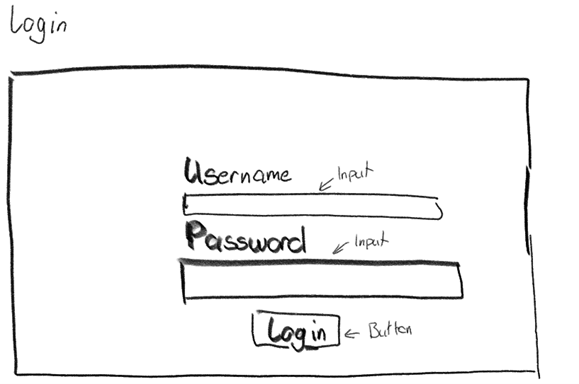 Login
Username
Input
Password
Input
Login
Button